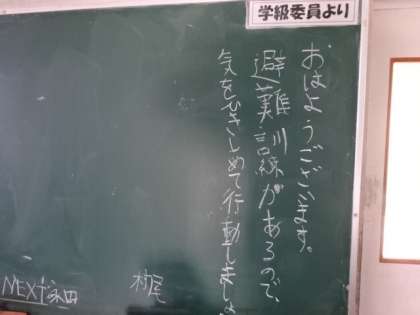 学級委員より
おはようございます。
避難訓練があるので、
気をひきしめて行動しましょ
NEXT